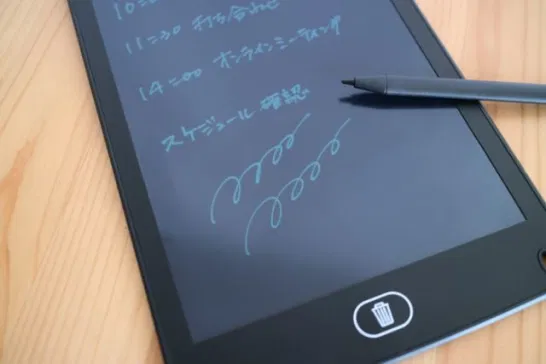 10=00
11=30 打ち合わせ
14=00 オンラインミーティング
スケジュール 確認